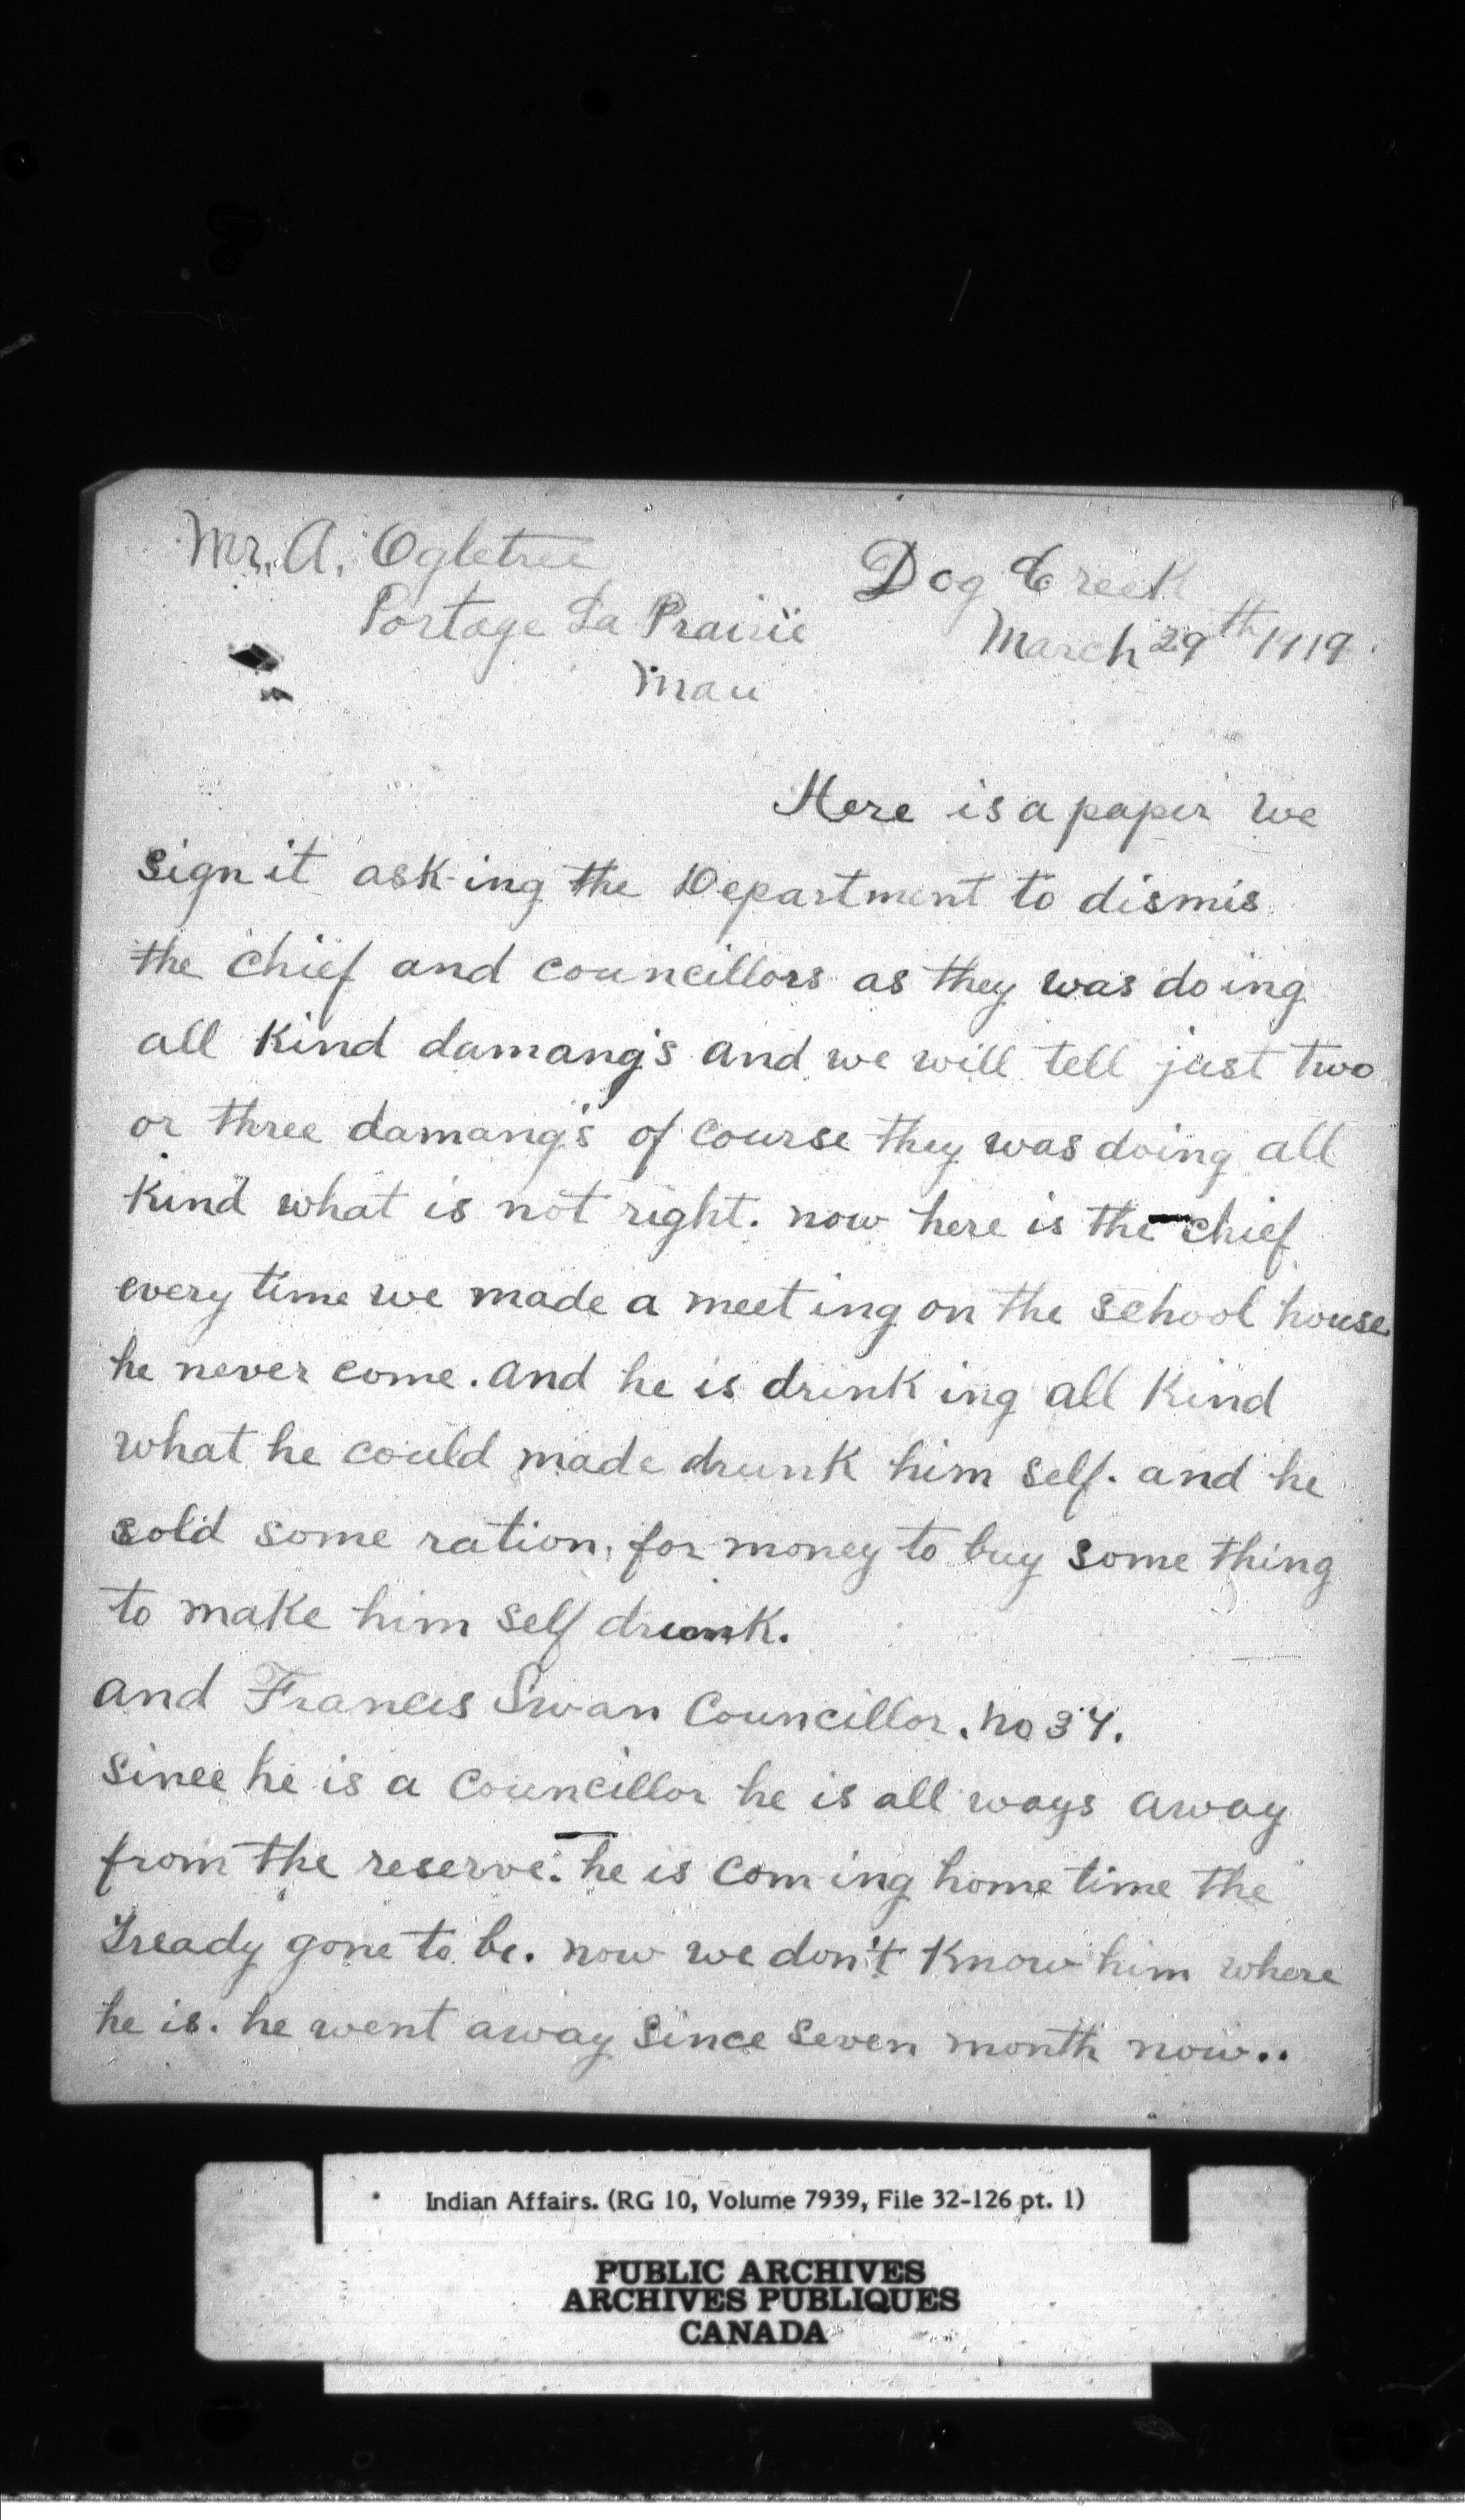 Mr. A. Ogletree
Portage La Prairie
Man
Dog Creek
March 29th 1919
Here is a paper we
sign it ask-ing the Department to dismis
the chief and councillors as they was doing
all kind damang's and we will tell just two
or three damang's of course they was doing all
kind what is not right. now here is the chief
every time we made a meeting on the school house
he never come. and he is drink ing all kind
what he could made drunk him self. and he
sold some ration. for money to buy some thing
to make him self drunk.
and Francis Swan Councillor. no 34.
since he is a councillor he is all ways away
from the reserve. he is coming home time the
Tready gone to be. now we don't know him where
he is. he went away since seven month now..
Indian Affairs. (RG 10, Volume 7939, File 32-126 pt. 1)
PUBLIC ARCHIVES
ARCHIVES PUBLIQUES
CANADA